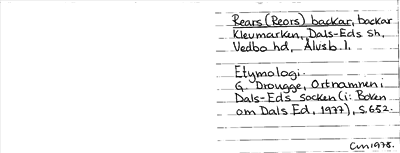 Rears (Reors) backar, backar
Kleumarken, Dals-Eds sh,
Vedbo hd, Älvsb. l.
Etymologi
G. Drougge, Ortnamnen i
Dals-Eds socken (i: Boken
om Dals Ed, 1977), s. 652.
Cm 1978.